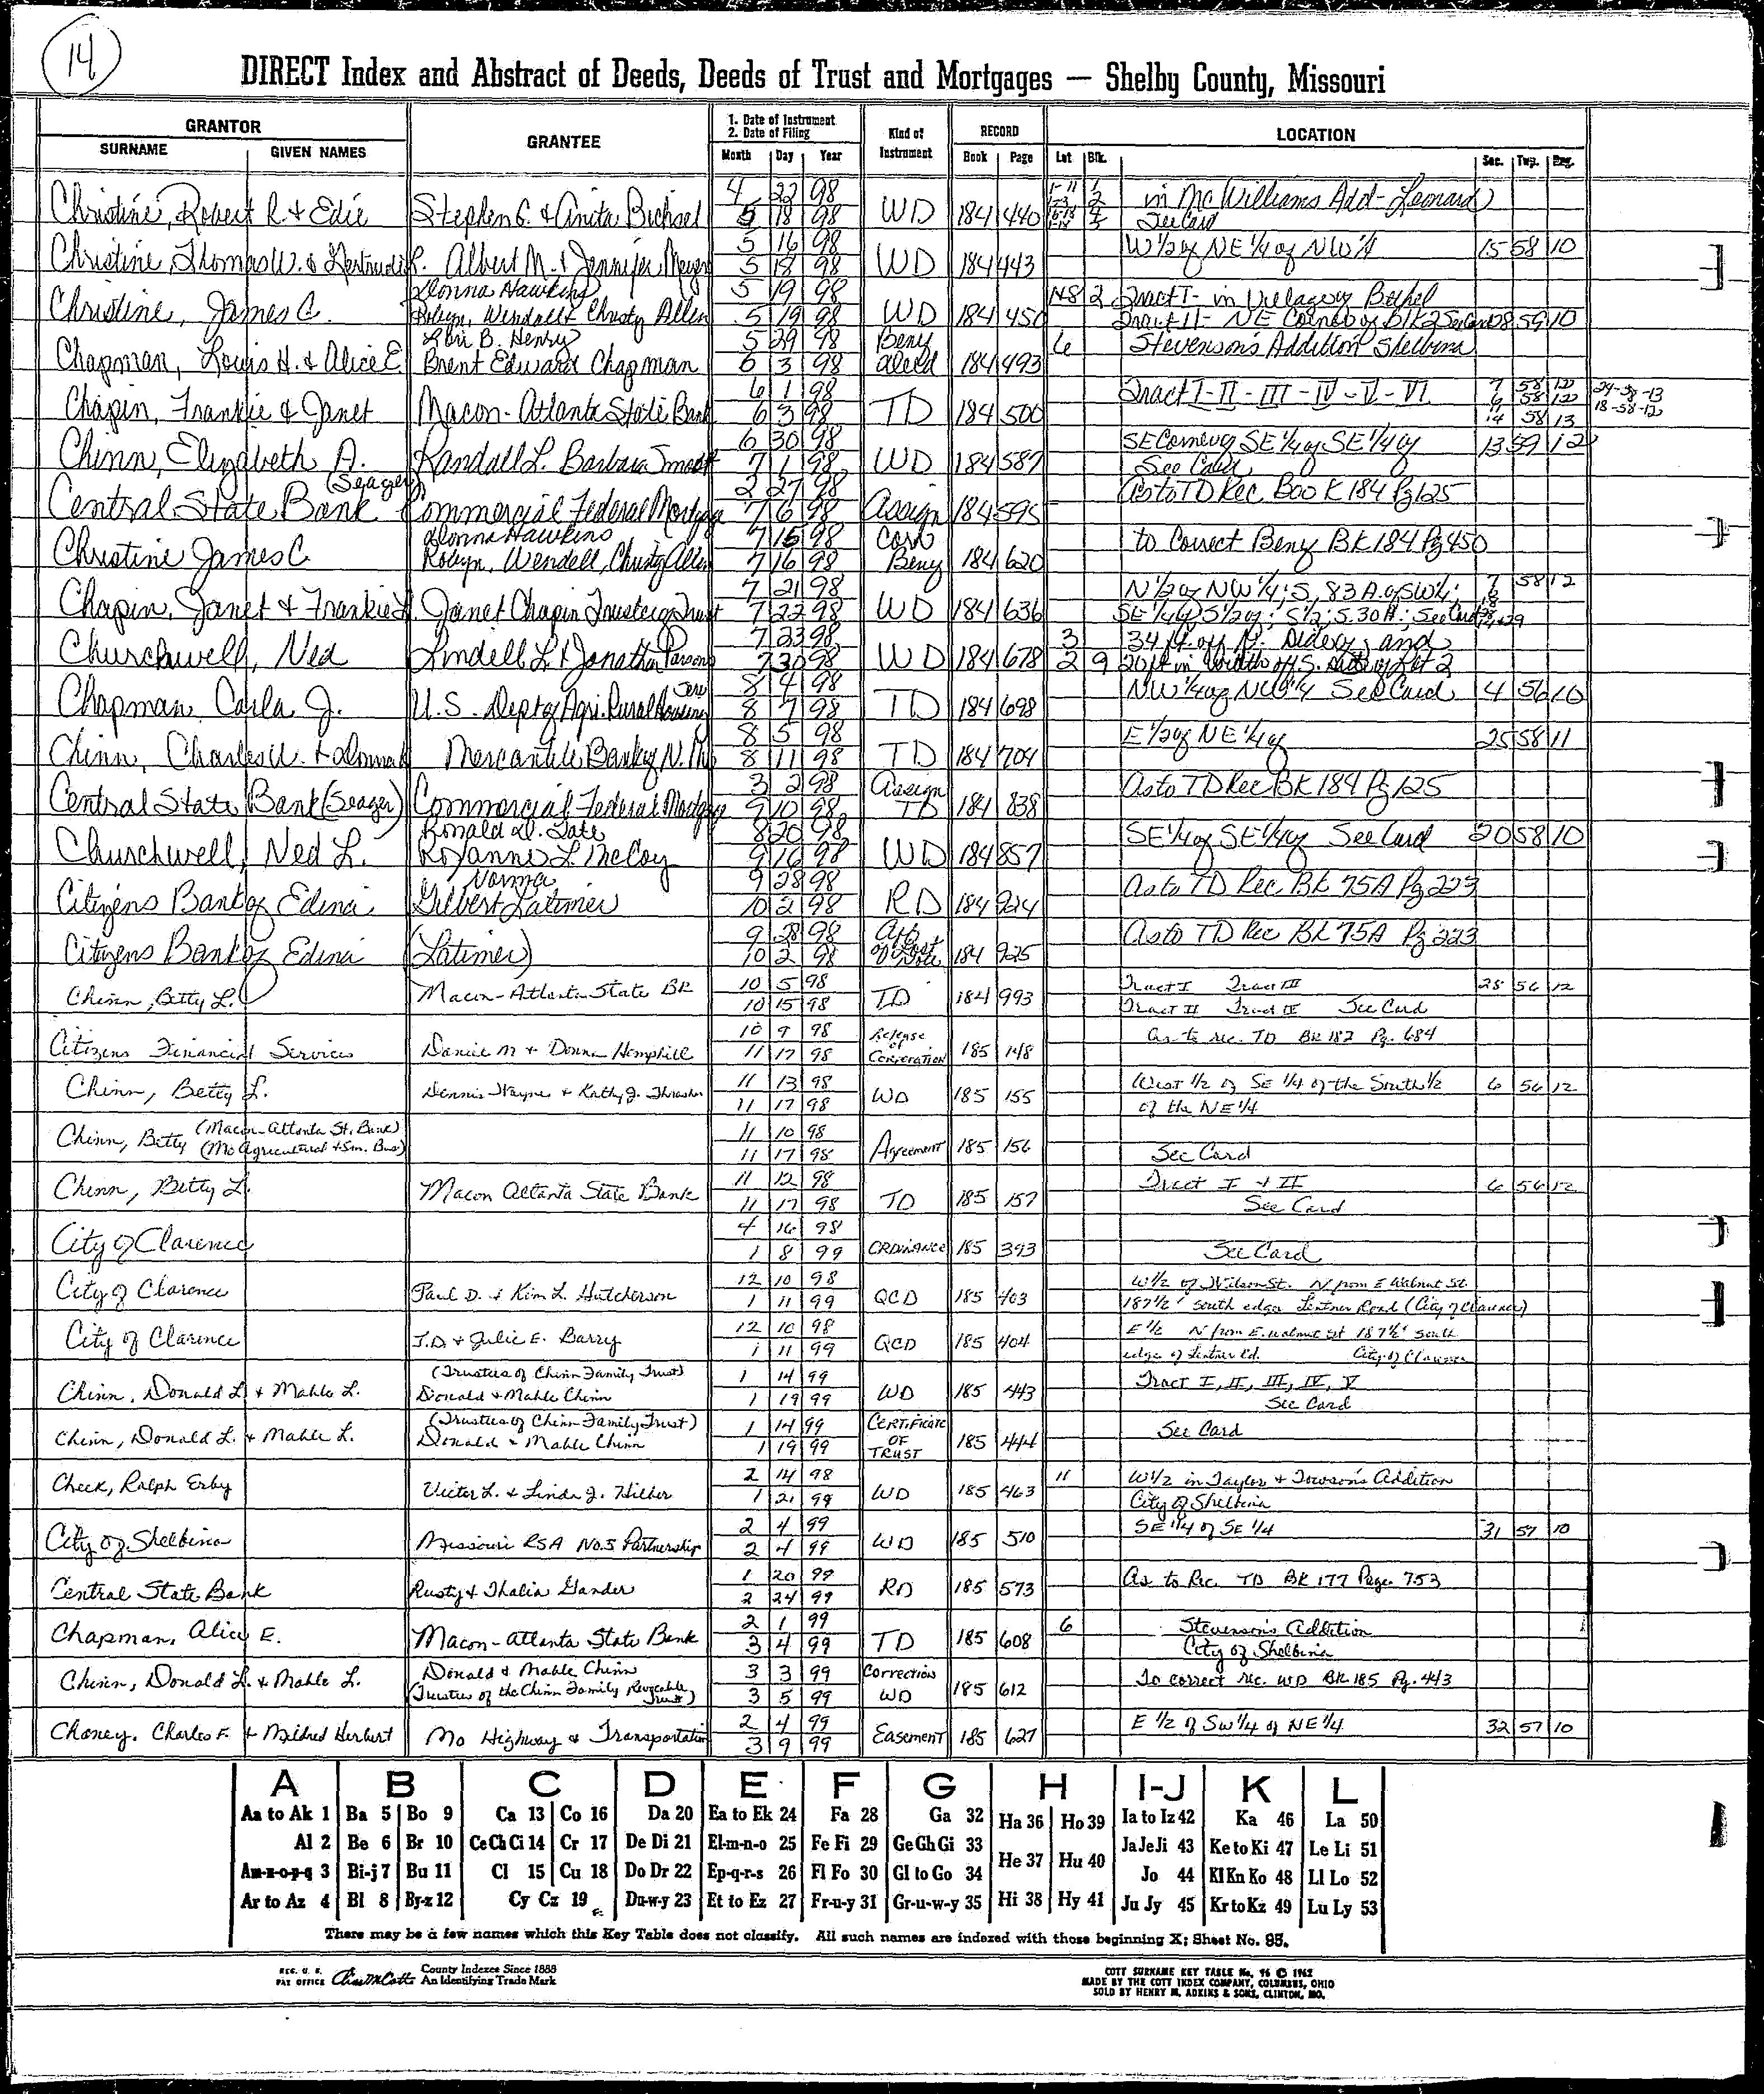 14
DIRECT Index and Abstract of Deeds, Deeds of Trust and Mortgages — Shelby County, Missouri
GRANTOR
SURNAME GIVEN NAMES
GRANTEE
1. Date of Instrument
2. Date of Filing
Month Day Year
Kind of Instrument
RECORD
Book Page
LOCATION
Lot Blk. Sec. Twp. Rng.
Christine, Robert R & Edie Stephen C. & Anita Bichsel 4 22 98 WD 184 440 in McWilliams Add - Leonard
5 18 98 See Card
Christine, Thomas W. & Albert M. & Jennifer Meyer 5 16 98 WD 184 443 W 1/2 of NE 1/4 of NW 1/4 15 58 10
5 18 98
Christine, James C. Donna Hawkins 5 19 98 WD 184 450 2 Tract I - in Village of Bethel
Robyn, Wendall & Christy Allen 5 19 98 Tract II - NE Corner of Blk 2 See Card 59 10
Chapman, Louis H. & Alice E. Lori B. Henry 5 29 98 Beny Deed 184 493 6 Stevenson's Addition Shelbina
Brent Edward Chapman 6 3 98
Chapin, Frankie & Janet Macon-Atlanta State Bank 6 1 98 TD 184 500 Tract I - II - III - IV - V - VI 7 58 12
6 3 98 6 58 12
14 58 13
18-58-12
Chinn, Elizabeth A. Randall L. Barbara Smoot 6 30 98 WD 184 587 SE Corner of SE 1/4 of SE 1/4 of 13 59 12
7 1 98 See Card
Central State Bank (Seager) Commercial Federal Mortgage 2 27 98 Assign 184 595 As to TD Rec. Book 184 Pg 125
7 6 98
Christine James C. Donna Hawkins 7 15 98 Corr Beny 184 620 to Correct Beny BK 184 Pg 450
Robyn, Wendell, Christy Allen 7 16 98
Chapin, Janet & Frankie Janet Chapin Trustee of Trust 7 21 98 WD 184 636 N 1/2 of NW 1/4; S. 83 A. of SW 1/4; 7 58 12
7 22 98 SE 1/4 S 1/2 of; S 1/2; S. 30 A.; See Card
Churchwell, Ned Lindell L & Jonatha Parsons 7 23 98 WD 184 678 3 34 ft off N. Side of, and
7 30 98 2 9 20 ft in width off S. side of Lot 2
Chapman Carla J. U.S. Dept of Agri. Rural Housing Serv 8 4 98 TD 184 698 NW 1/4 of NW 1/4 See Card 4 56 10
8 7 98
Chinn, Charles W. & Donna Mercantile Bank of N. Mo 8 5 98 TD 184 704 E 1/2 of NE 1/4 of 25 58 11
8 11 98
Central State Bank (Seager) Commercial Federal Mortgage 3 2 98 Assign TD 184 838 As to TD Rec BK 184 Pg 125
9 10 98
Churchwell, Ned L. Ronald D. Tate 8 20 98 WD 184 857 SE 1/4 of SE 1/4 of See Card 20 58 10
Roxanne L. McCoy 9 16 98
Citizens Bank of Edina Norma 9 28 98 RD 184 924 As to TD Rec. BK 75A Pg 223
Gilbert Latimer 10 2 98
Citizens Bank of Edina (Latimer) 9 28 98 Aff of Lost Note 184 925 As to TD Rec BK 75A Pg 223
10 2 98
Chinn, Betty L. Macon-Atlanta State BK 10 5 98 TD 184 993 Tract I Tract III 28 56 12
10 15 98 Tract II Tract IV See Card
Citizens Financial Services Daniel M & Donna Hemphill 10 9 98 Release of Corporation 185 148 As to rec. TD BK 182 Pg. 684
11 17 98
Chinn, Betty L. Dennis Wayne & Kathy J. Thrasher 11 13 98 WD 185 155 West 1/2 of SE 1/4 of the South 1/2 6 56 12
11 17 98 of the NE 1/4
Chinn, Betty (Macon-Atlanta St. Bank) 11 10 98 Agreement 185 156 See Card
(Mo Agricultural & Sm. Bus) 11 17 98
Chinn, Betty L. Macon Atlanta State Bank 11 12 98 TD 185 157 Tract I & II 6 56 12
11 17 98 See Card
City of Clarence 4 16 98 ORDINANCE 185 393 See Card
1 8 99
City of Clarence Paul D. & Kim L. Hutcherson 12 10 98 QCD 185 403 W 1/2 of Wilson St. N from E Walnut St.
1 11 99 187 1/2' south edge Lentner Road (City of Clarence)
City of Clarence J.D & Julie E. Barry 12 10 98 QCD 185 404 E 1/2 N from E. Walnut St 187 1/2' South
1 11 99 edge of Lentner Rd. City of Clarence
Chinn, Donald L. & Mable L. (Trustees of Chinn Family Trust) 1 14 99 WD 185 443 Tract I, II, III, IV, V
Donald & Mable Chinn 1 19 99 See Card
Chinn, Donald L. & Mable L. (Trustees of Chinn Family Trust) 1 14 99 CERTIFICATE OF TRUST 185 444 See Card
Donald & Mable Chinn 1 19 99
Cheek, Ralph Erby Victor L. & Linda J. Hilber 2 14 98 WD 185 463 11 W 1/2 in Taylor & Towson's Addition
1 21 99 City of Shelbina
City of Shelbina Missouri RSA No. 5 Partnership 2 4 99 WD 185 510 SE 1/4 of SE 1/4 31 57 10
2 4 99
Central State Bank Rusty & Thalia Gander 1 20 99 RD 185 573 As to Rec. TD BK 177 Page 753
2 24 99
Chapman, Alice E. Macon-Atlanta State Bank 2 1 99 TD 185 608 6 Stevenson's Addition
3 4 99 City of Shelbina
Chinn, Donald L. & Mable L. Donald & Mable Chinn 3 3 99 Correction WD 185 612 To correct rec. WD BK 185 Pg. 443
(Trustees of the Chinn Family Revocable Trust) 3 5 99
Choney, Charles F. & Mildred Herbert Mo Highway & Transportation 2 4 99 Easement 185 627 E 1/2 of SW 1/4 of NE 1/4 32 57 10
3 9 99
A B C D E F G H I-J K L
Aa to Ak 1 Ba 5 Bo 9 Ca 13 Co 16 Da 20 Ea to Ek 24 Fa 28 Ga 32 Ha 36 Ho 39 Ia to Iz 42 Ka 46 La 50
Al 2 Be 6 Br 10 Ce Ch Ci 14 Cr 17 De Di 21 El-m-n-o 25 Fe Fi 29 Ge Gh Gi 33 He 37 Hu 40 Ja Je Ji 43 Ke to Ki 47 Le Li 51
Am-n-o-p-q 3 Bi-j 7 Bu 11 Cl 15 Cu 18 Do Dr 22 Ep-q-r-s 26 Fl Fo 30 Gl to Go 34 Jo 44 Kl Kn Ko 48 Ll Lo 52
Ar to Az 4 Bl 8 By-z 12 Cy Cz 19 Du-w-y 23 Et to Ez 27 Fr-u-y 31 Gr-u-w-y 35 Hi 38 Hy 41 Ju Jy 45 Kr to Kz 49 Lu Ly 53
There may be a few names which this Key Table does not classify. All such names are indexed with those beginning X; Sheet No. 95.
REG. U. S. PAT OFFICE County Indexes Since 1888
An Identifying Trade Mark
COTT SURNAME KEY TABLE No. 96 © 1962
MADE BY THE COTT INDEX COMPANY, COLUMBUS, OHIO
SOLD BY HENRY M. ADKINS & SONS, CLINTON, MO.